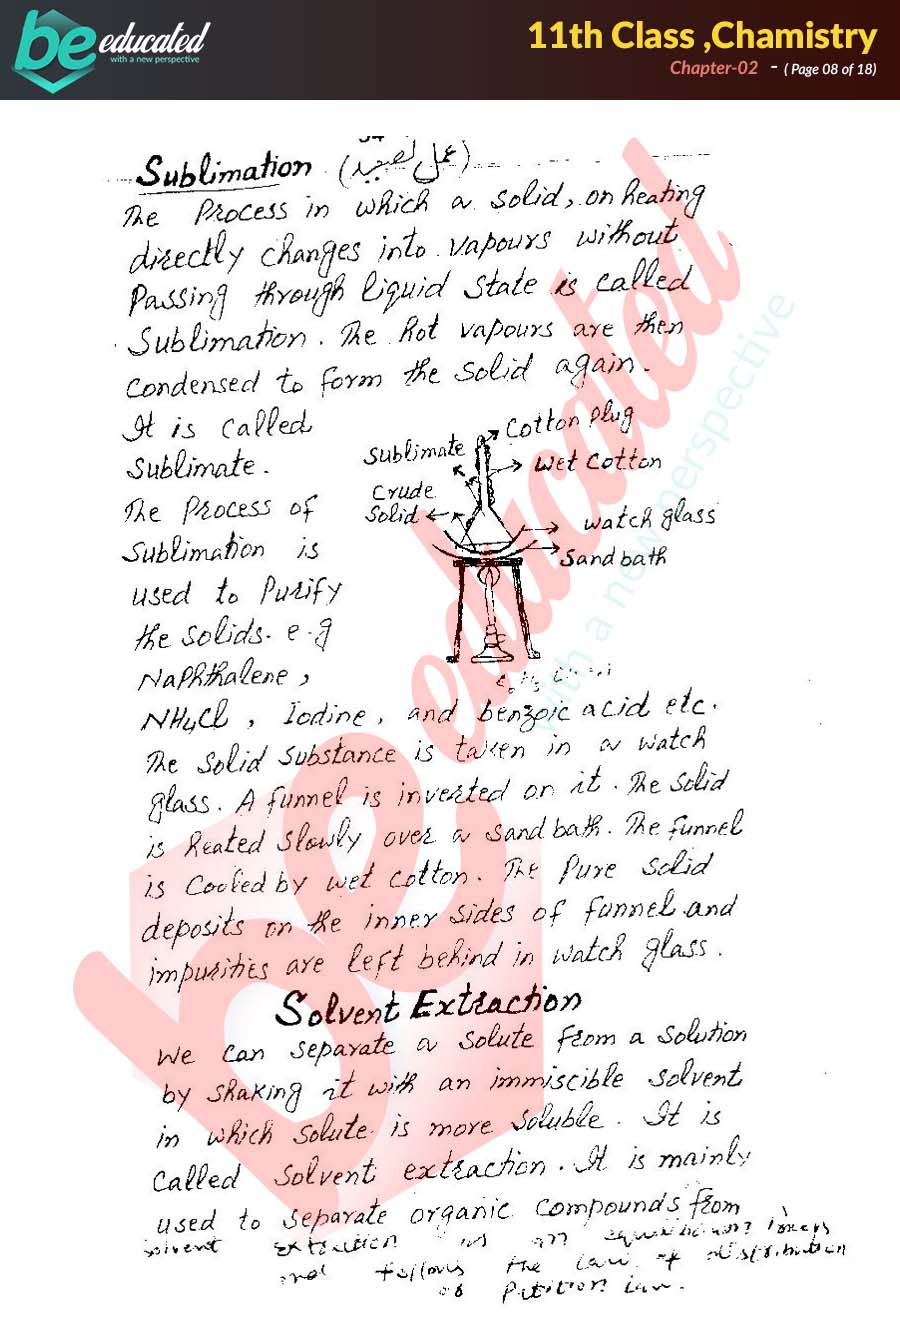 be educated
with a new perspective
11th Class ,Chamistry
Chapter-02 - ( Page 08 of 18)
Sublimation (عمل تصعید)
The Process in which a solid, on heating
directly changes into vapours without
Passing through liquid state is called
Sublimation. The hot vapours are then
condensed to form the solid again.
It is called
Sublimate.
The Process of
Sublimation is
used to Purify
the solids. e.g
Naphthalene,
Cotton Plug
Sublimate
Wet Cotton
Crude
Solid
watch glass
Sand bath
NH4Cl, Iodine, and benzoic acid etc.
The solid substance is taken in a watch
glass. A funnel is inverted on it. The solid
is heated slowly over a sand bath. The funnel
is Cooled by wet cotton. The Pure solid
deposits on the inner sides of funnel and
impurities are left behind in watch glass.
Solvent Extraction
We can separate a solute from a solution
by shaking it with an immiscible solvent
in which solute is more soluble. It is
called solvent extraction. It is mainly
used to separate organic compounds from
solvent extraction is an
and follows the law of distribution
or Petition law.
be educated
with a new perspective